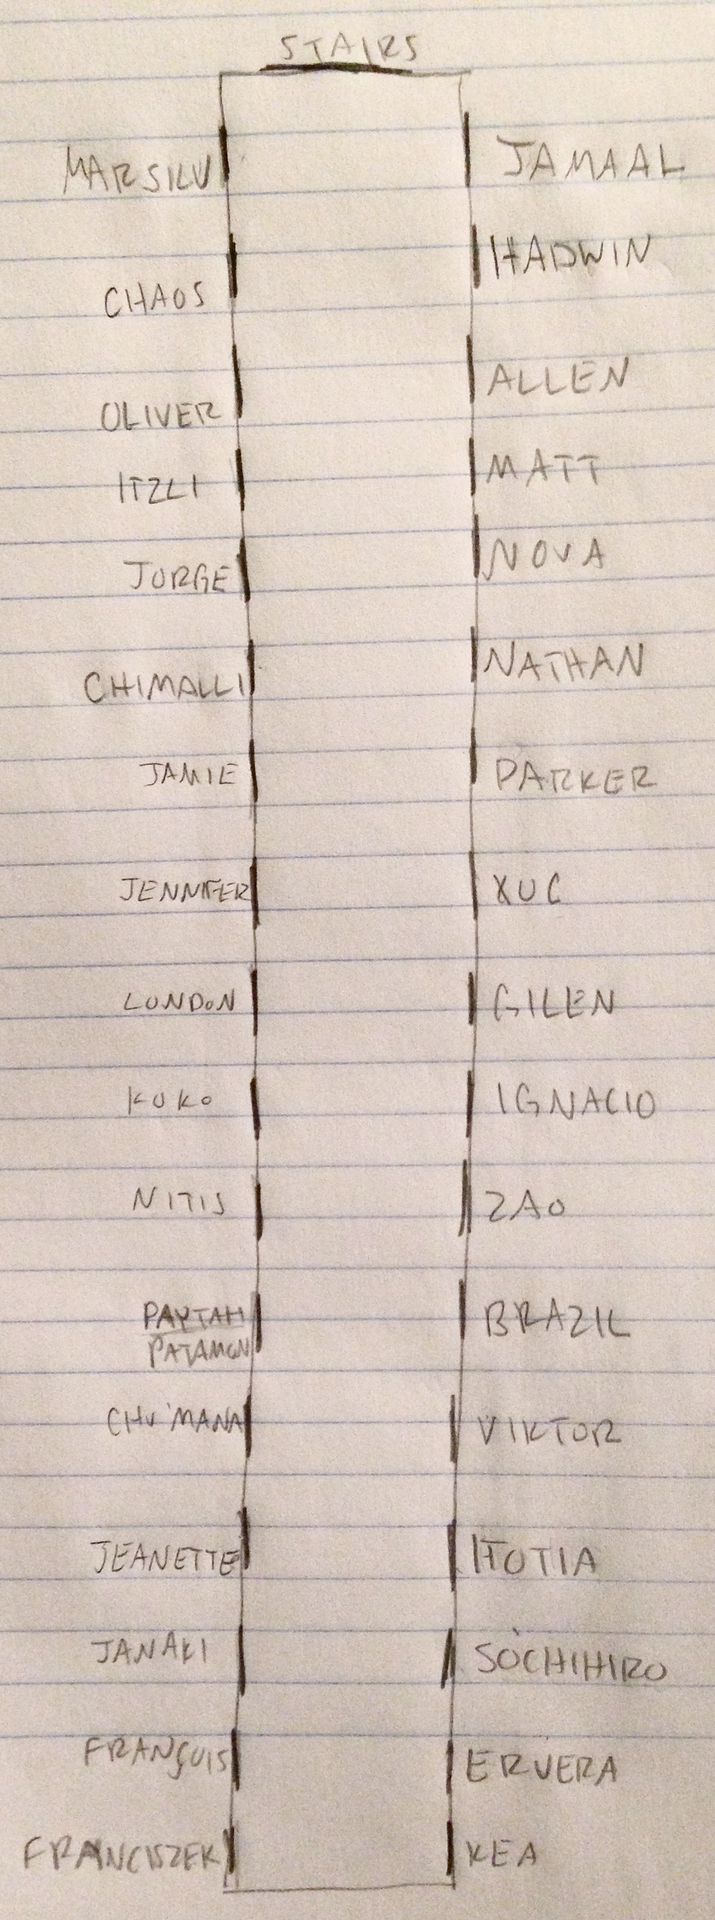 STAIRS
MARSILU JAMAAL
CHAOS HADWIN
OLIVER ALLEN
ITZLI MATT
JORGE NOVA
CHIMALLI NATHAN
JAMIE PARKER
JENNIFER XUC
LONDON GILEN
KUKO IGNACIO
NITIS ZAO
PAYTAH BRAZIL
PATAMON
CHU'MANA VIKTOR
JEANETTE ITOTIA
JANAKI SOCHIHIRO
FRANÇOIS ERVERA
FRANCISZEK KEA